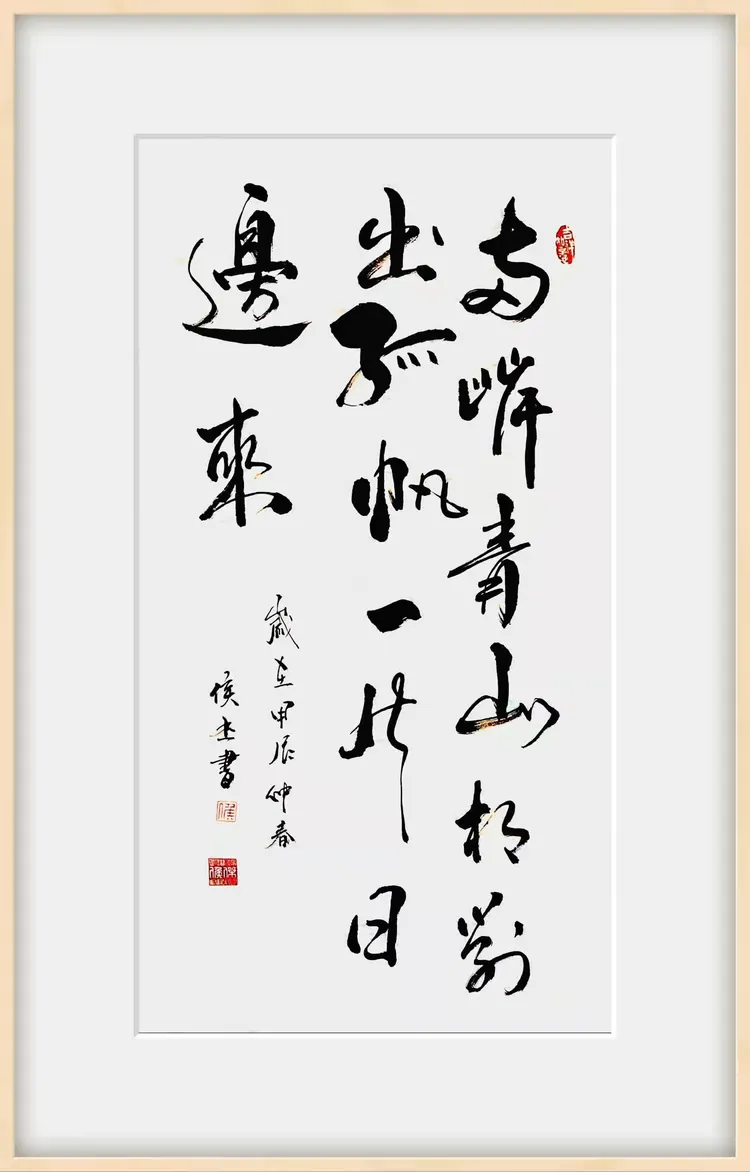 两岸青山相對
出孤帆一片日
邊來
歲在甲辰仲春
侯杰書